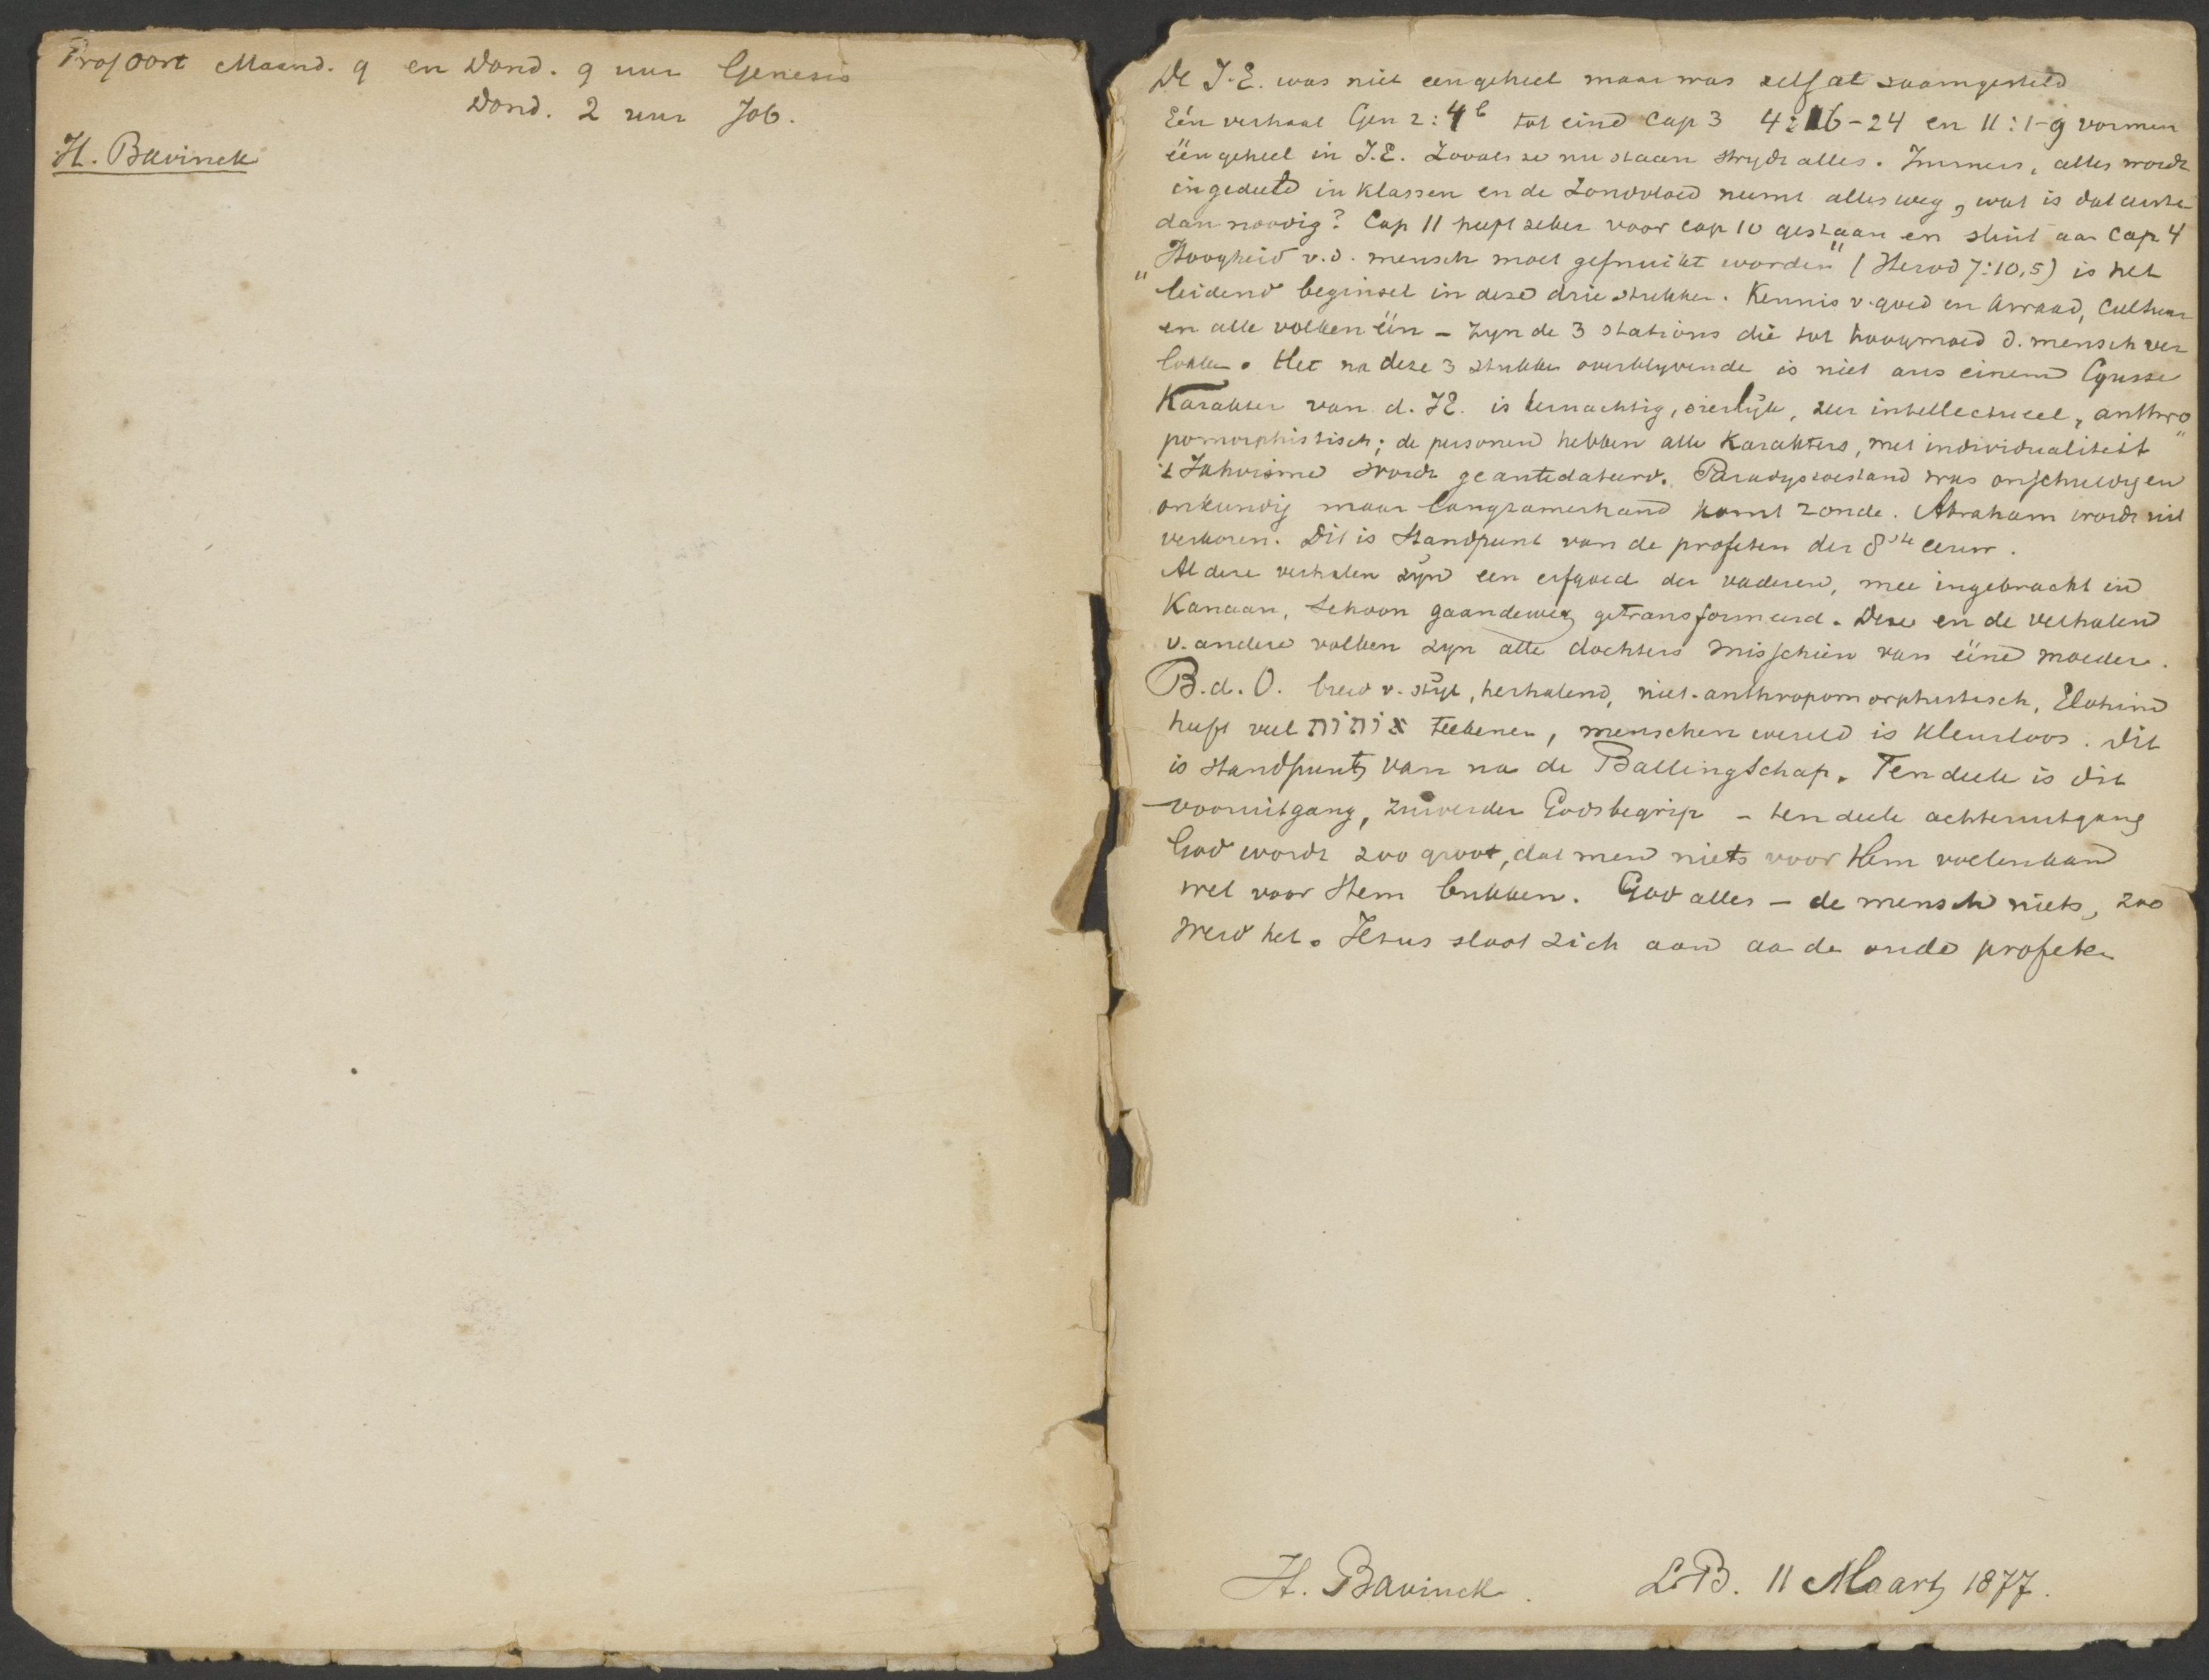 Prof Oort Maand. 9 en Dond. 9 uur Genesis
Dond. 2 uur Job.
H. Bavinck
De J.E. was niet een geheel maar was zelf al zaamgesteld
Eén verhaal Gen 2:4b tot eind Cap 3 4:16-24 en 11:1-9 vormen
één geheel in J.E. Zooals ze nu staan strydt alles. Immers, alles wordt
ingedeeld in klassen en de Zondvloed neemt alles weg, wat is dat eerste
dan noodig? Cap 11 heeft zeker voor cap 10 gestaan en sluit aan Cap 4
"Hoogheid v.d. mensch moet gefnuikt worden" (Herod 7:10,5) is het
leidend beginsel in deze drie stukken. Kennis v. goed en kwaad, Cultuur
en alle volken één - zyn de 3 stations die tot hoogmoed d. mensch ver
lokken. Het na deze 3 stukken overblyvende is niet aus einem Gusse
Karakter van d. JE. is kernachtig, sierlijk, zeer intellectueel, anthro
pomorphistisch; de personen hebben alle Karakters, met individualiteit
't Jahvisme wordt geantedateerd. Paradystoestand was onschuldig en
onkundig maar langzamerhand komt zonde. Abraham wordt uit
verkoren. Dit is Standpunt van de profeten der 8ste eeuw.
Al deze verhalen zijn een erfgoed der vaderen, mee ingebracht in
Kanaan, schoon gaandeweg getransformeerd. Deze en de verhalen
v. andere volken zyn alle dochters misschien van ééne moeder.
B.d.O. breed v. stijl, herhalend, niet-anthropomorphistisch, Elohim
heeft veel אותות teekenen, menschen wereld is kleurloos. Dit
is standpunt van na de Ballingschap. Ten deele is dit
vooruitgang, zuiverder Godsbegrip - ten deele achteruitgang
God wordt zoo groot, dat men niets voor Hem voelen kan
wel voor Hem bukken. God alles - de mensch niets, zoo
werd het. Jezus sloot zich aan aan de oude profeten
H. Bavinck. L.B. 11 Maart 1877.